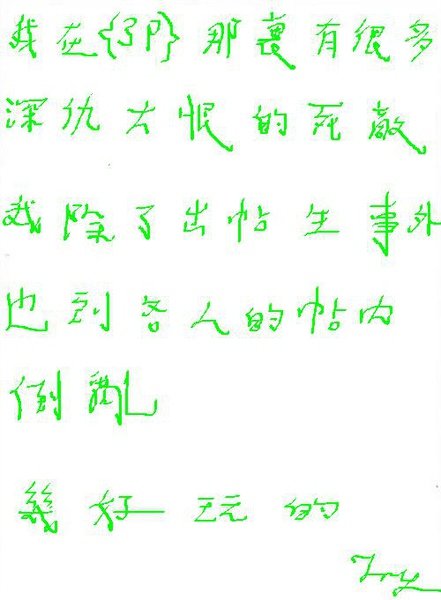 我在{孖P}那裏有很多
深仇大恨的死敵
我除了出帖生事外
也到各人的帖內
倒亂
幾好玩的